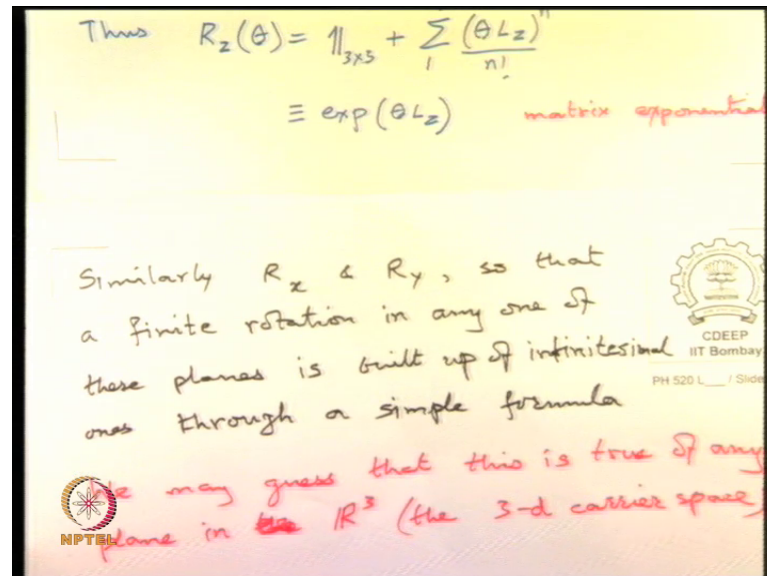 Thus R_z(θ) = 𝟙_{3×3} + Σ_1 (θL_z)^n / n!
≡ exp(θL_z) matrix exponential
Similarly R_x & R_y, so that
a finite rotation in any one of
these planes is built up of infinitesimal
ones through a simple formula
We may guess that this is true of any
plane in ℝ^3 (the 3-d carrier space)
CDEEP
IIT Bombay
PH 520 L___ / Slide
NPTEL